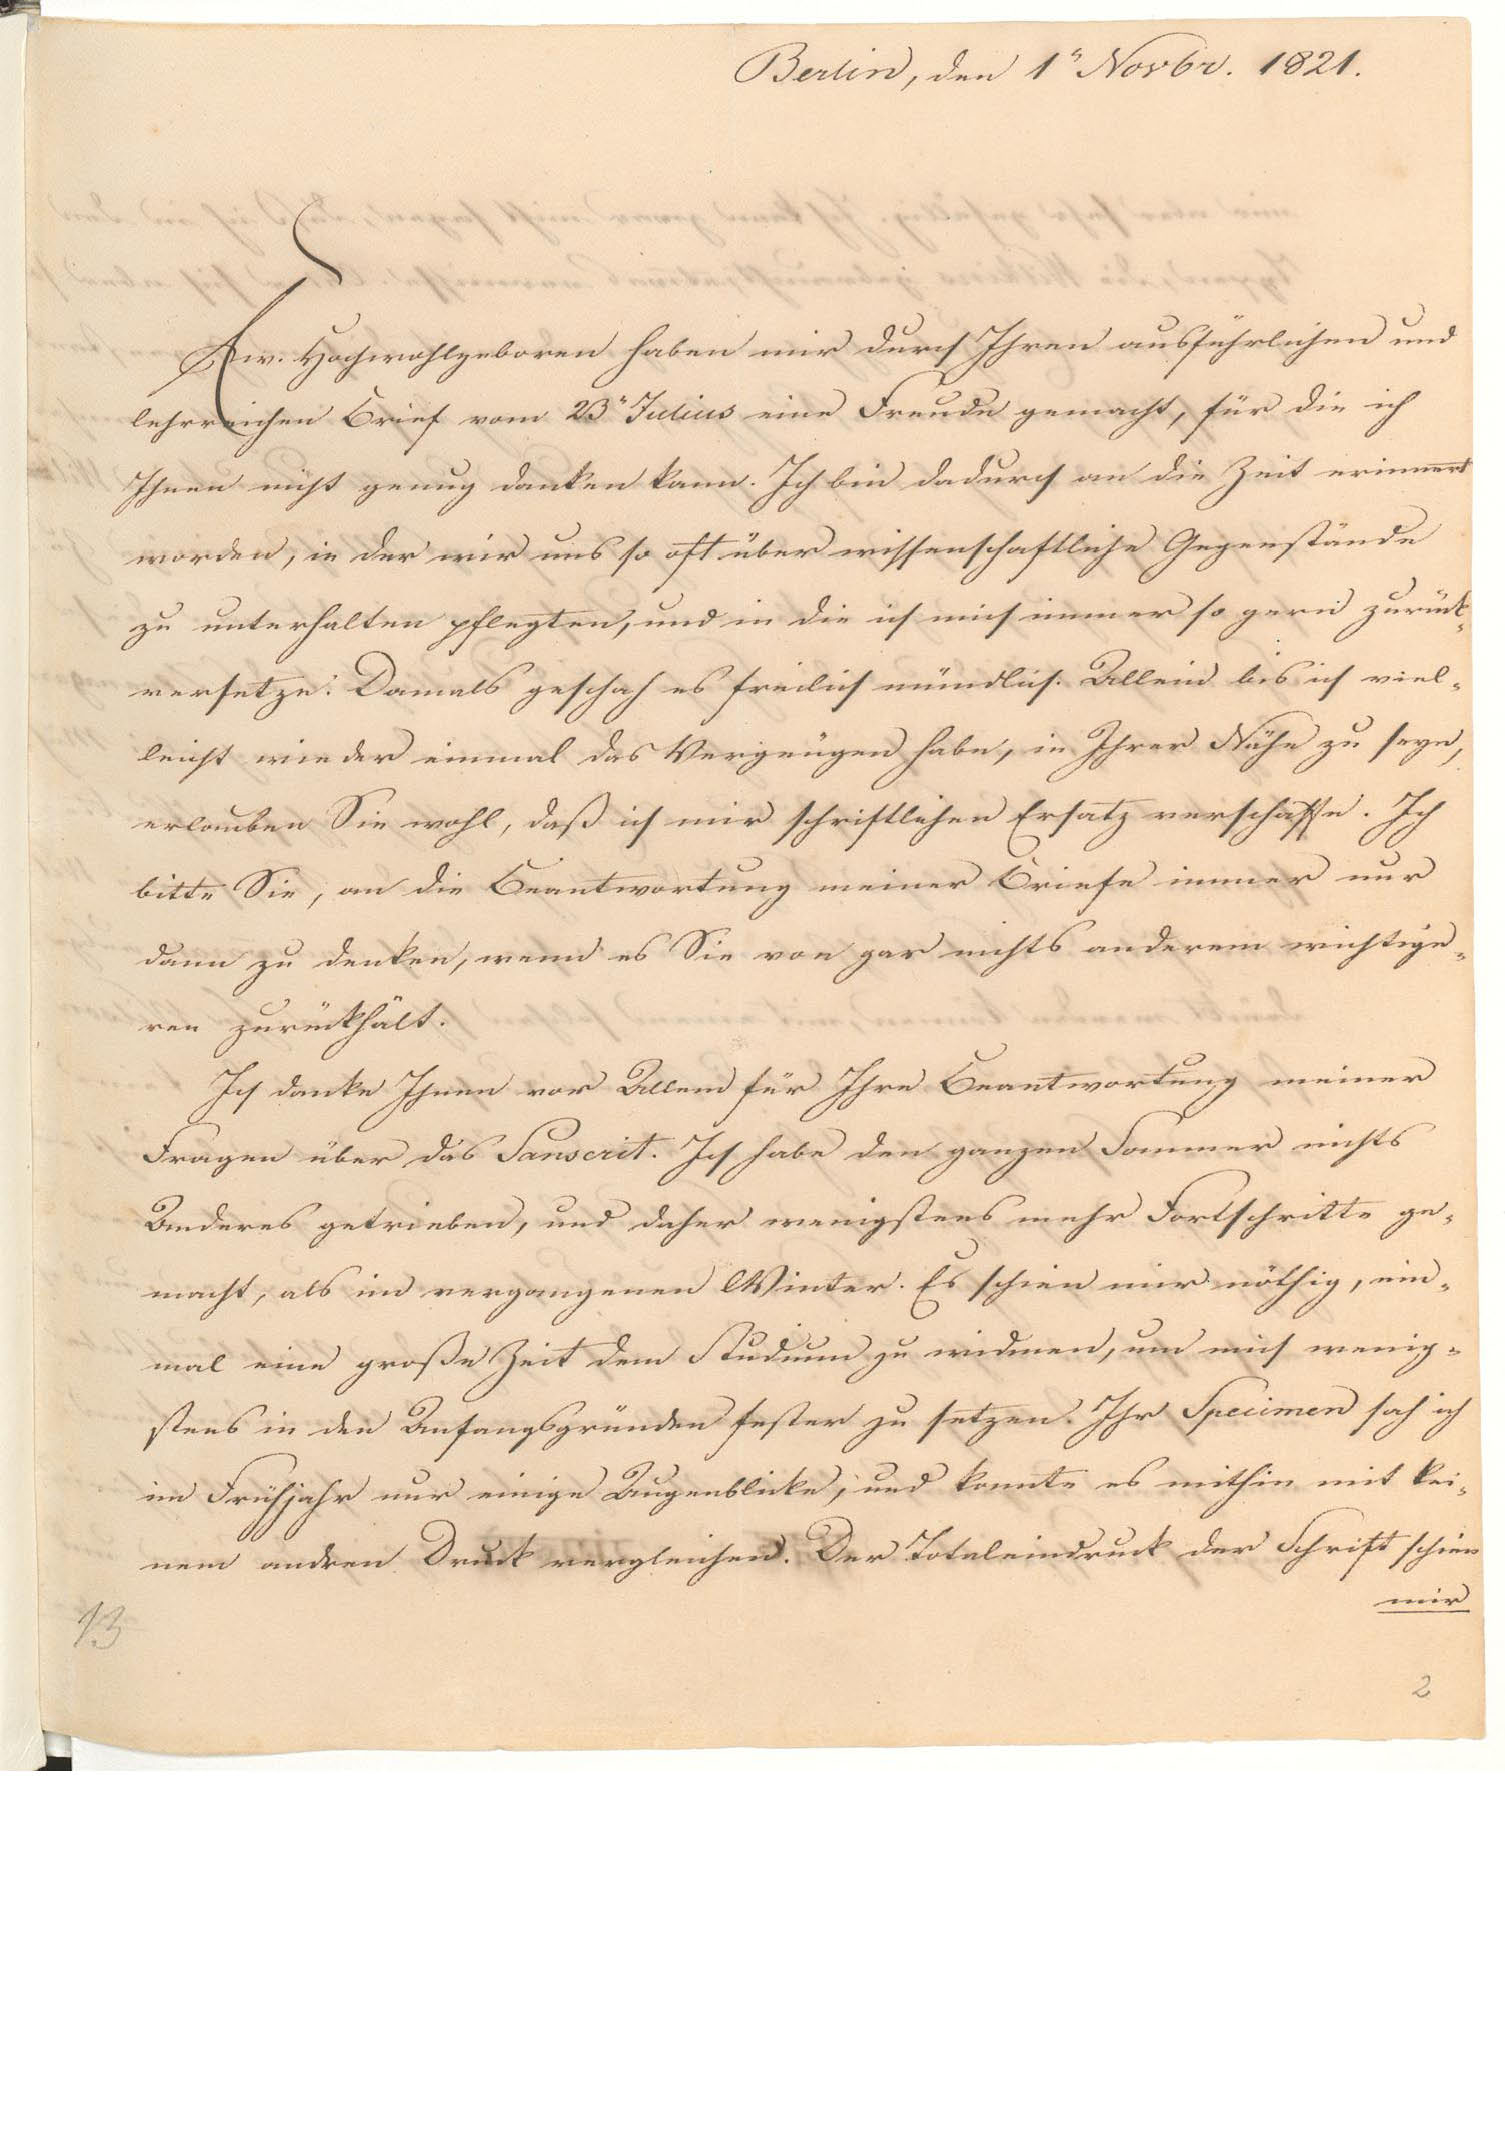 Berlin, den 1n Novbr. 1821.
Ew. Hochwohlgeboren haben mir durch Ihren ausführlichen und
lehrreichen Brief vom 23n Julius eine Freude gemacht, für die ich
Ihnen nicht genug danken kann. Ich bin dadurch an die Zeit erinnert
worden, in der wir uns so oft über wissenschaftliche Gegenstände
zu unterhalten pflegten, und in die ich mich immer so gern zurück-
versetze. Damals geschah es freilich mündlich. Allein bis ich viel-
leicht wieder einmal das Vergnügen habe, in Ihrer Nähe zu seyn,
erlauben Sie wohl, daß ich mir schriftlichen Ersatz verschaffe. Ich
bitte Sie, an die Beantwortung meiner Briefe immer nur
dann zu denken, wenn es Sie von gar nichts anderem wichtige-
ren zurückhält.
Ich danke Ihnen vor Allem für Ihre Beantwortung meiner
Fragen über das Sanscrit. Ich habe den ganzen Sommer nichts
Anderes getrieben, und daher wenigstens mehr Fortschritte ge-
macht, als im vergangenen Winter. Es schien mir nöthig, ein-
mal eine große Zeit dem Studium zu widmen, um mich wenig-
stens in den Anfangsgründen fester zu setzen. Ihr Specimen sah ich
im Frühjahr nur einige Augenblicke, und konnte es mithin mit kei-
nem andren Druck vergleichen. Der Totaleindruck der Schrift schien
mir
13
2